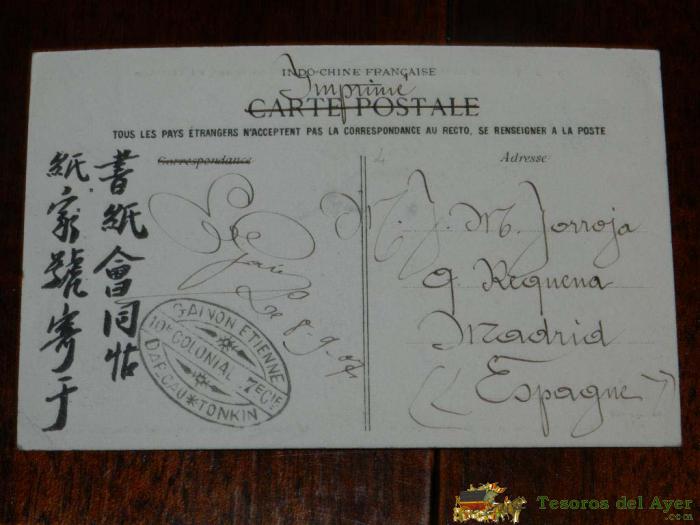 INDO-CHINE FRANÇAISE
Imprimé
CARTE POSTALE
TOUS LES PAYS ÉTRANGERS N'ACCEPTENT PAS LA CORRESPONDANCE AU RECTO, SE RENSEIGNER A LA POSTE
Correspondance
書紙會同帖
紙家號寄于
8-9-07
GAIVON ETIENNE
10e COLONIAL 7e Cie
DAP-CAU * TONKIN
Adresse
M. J. M. Jorroja
9 Requena
Madrid
(Espagne)
Tesoros del Ayer
.com